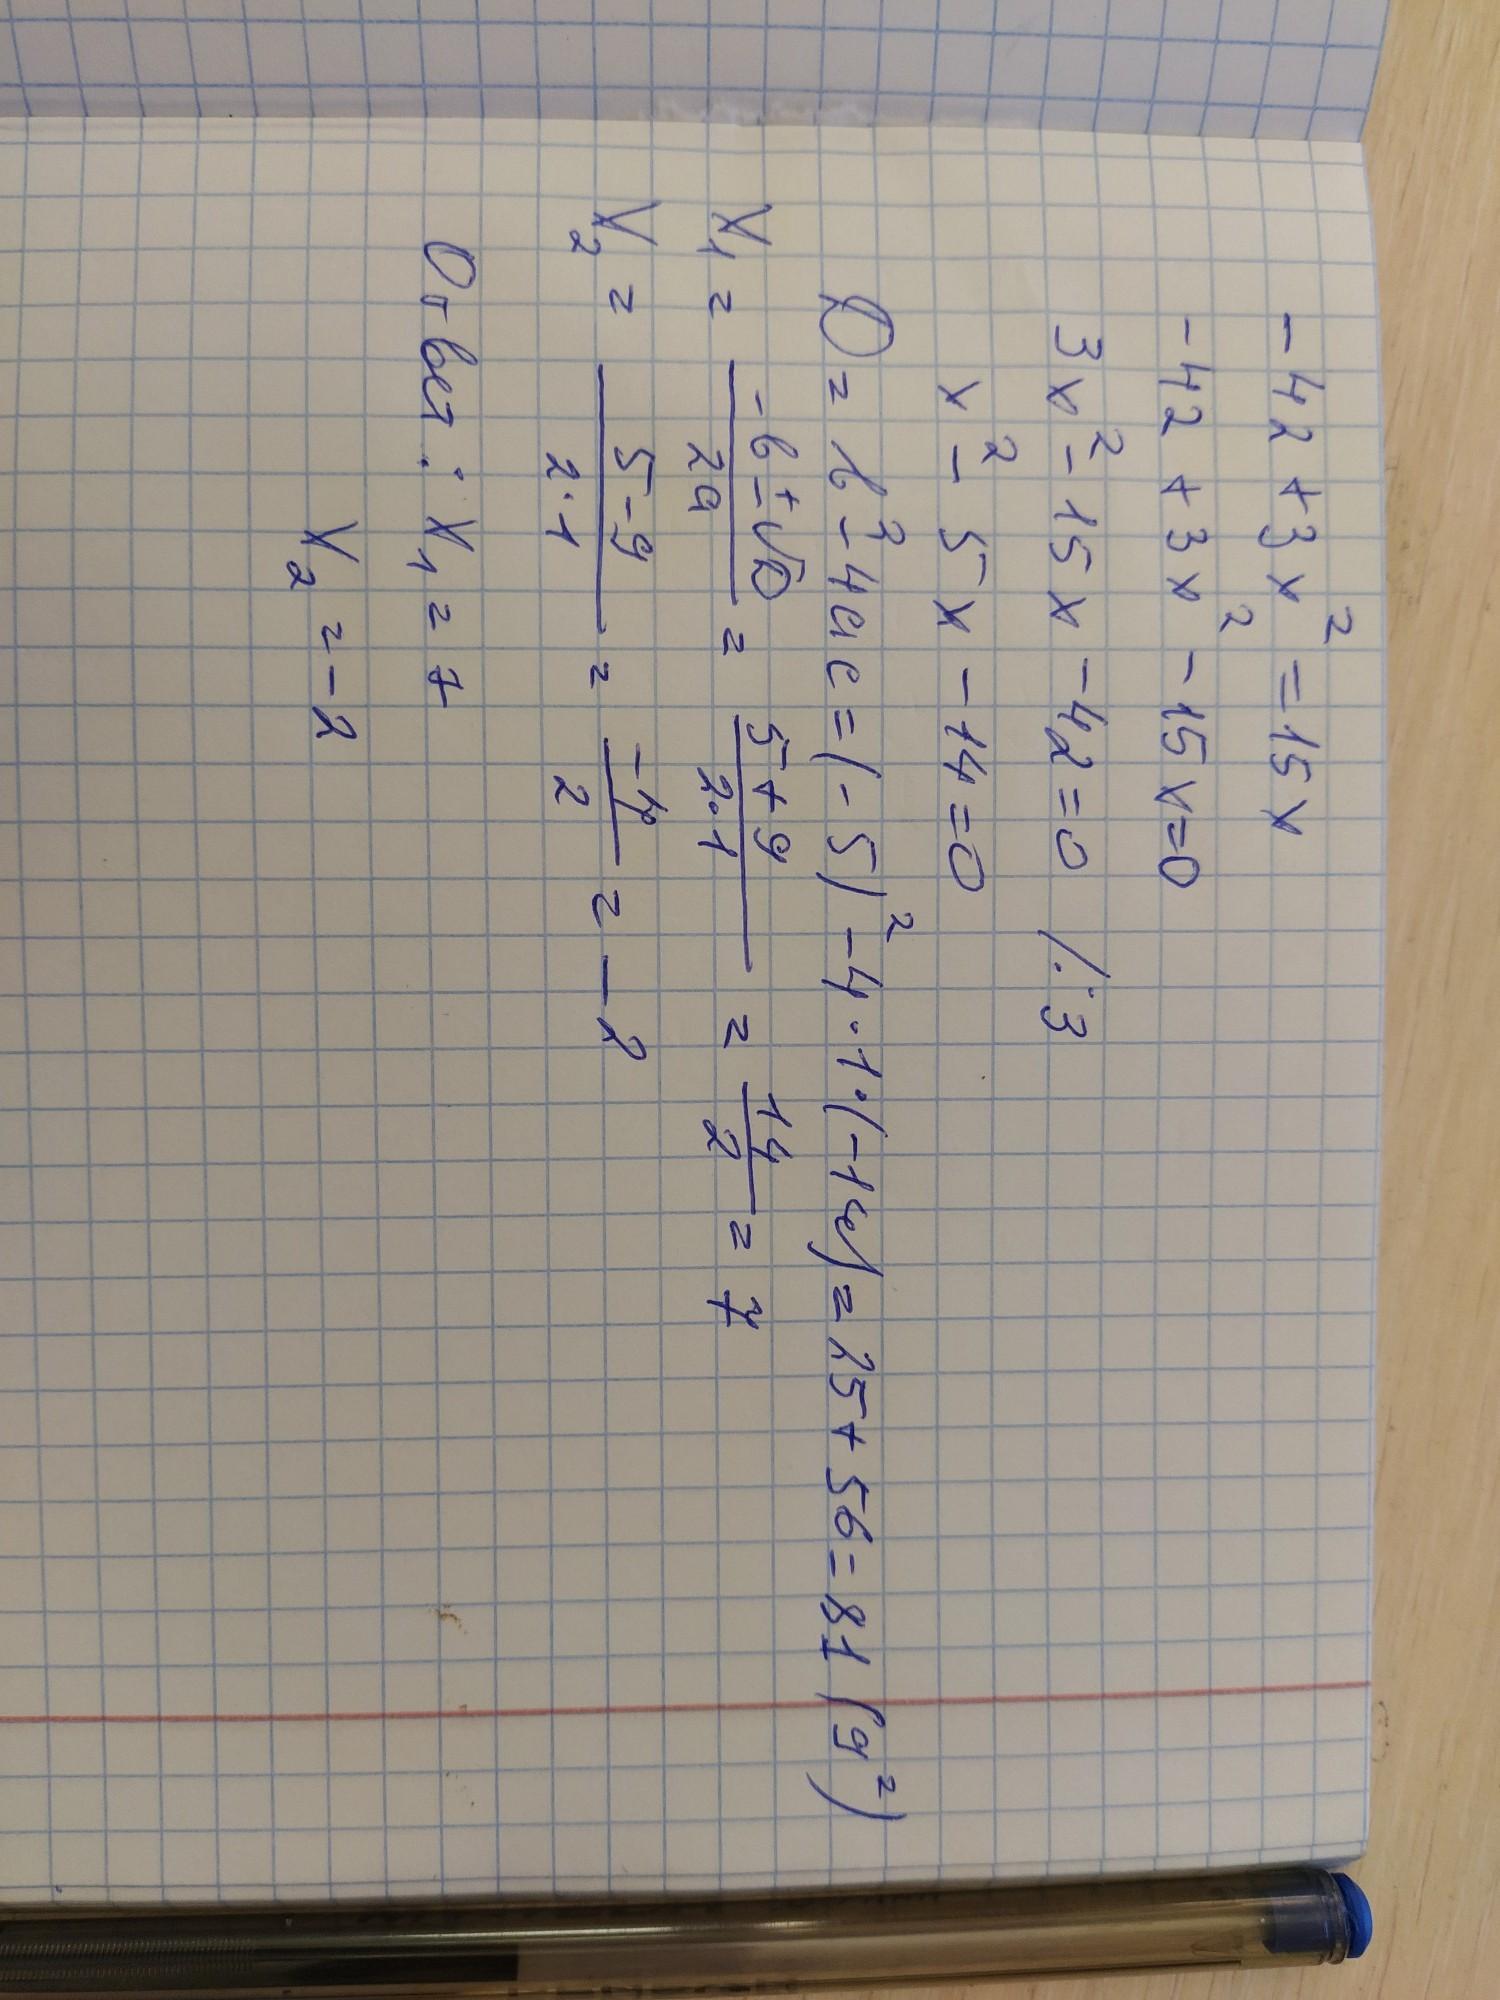 -42+3x²=15x
-42+3x²-15x=0
3x²-15x-42=0 /:3
x²-5x-14=0
D=b²-4ac=(-5)²-4·1·(-14)=25+56=81 (9²)
X₁ = (-b±√D)/(2a) = (5+9)/(2·1) = 14/2 = 7
X₂ = (5-9)/(2·1) = -4/2 = -2
Ответ: X₁=7
X₂=-2